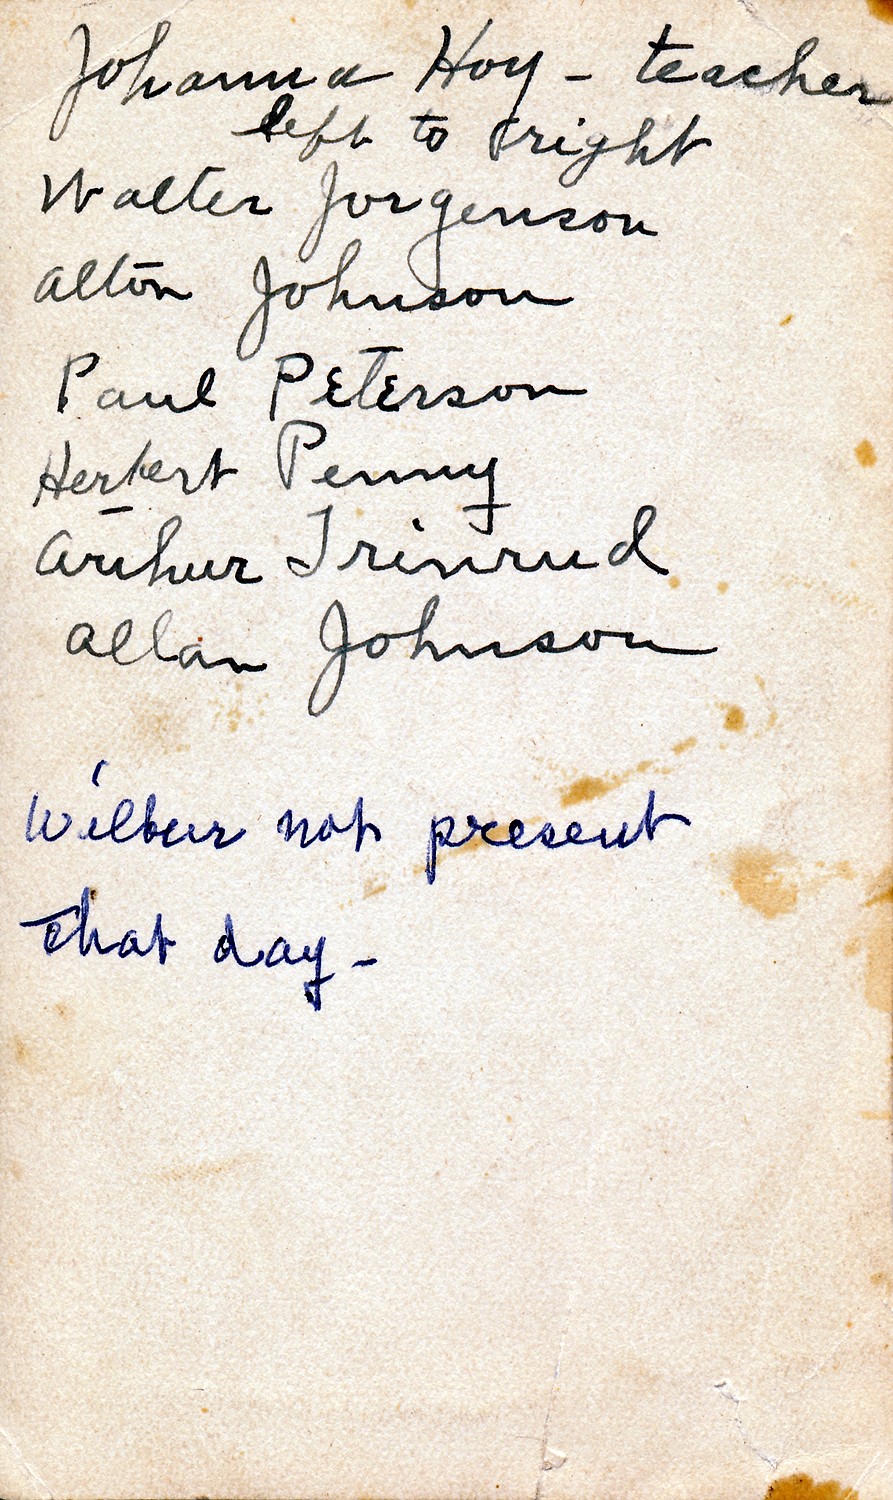 Johanna Hoy - teacher
left to right
Walter Jorgenson
Alton Johnson
Paul Peterson
Herbert Penny
Arthur Trinrud
Allan Johnson
Wilbur not present
that day -